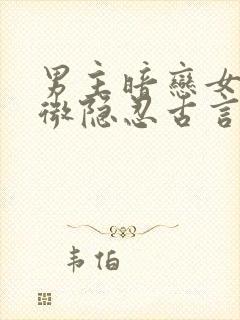 男主暗戀女
微隐忍古言
韦伯